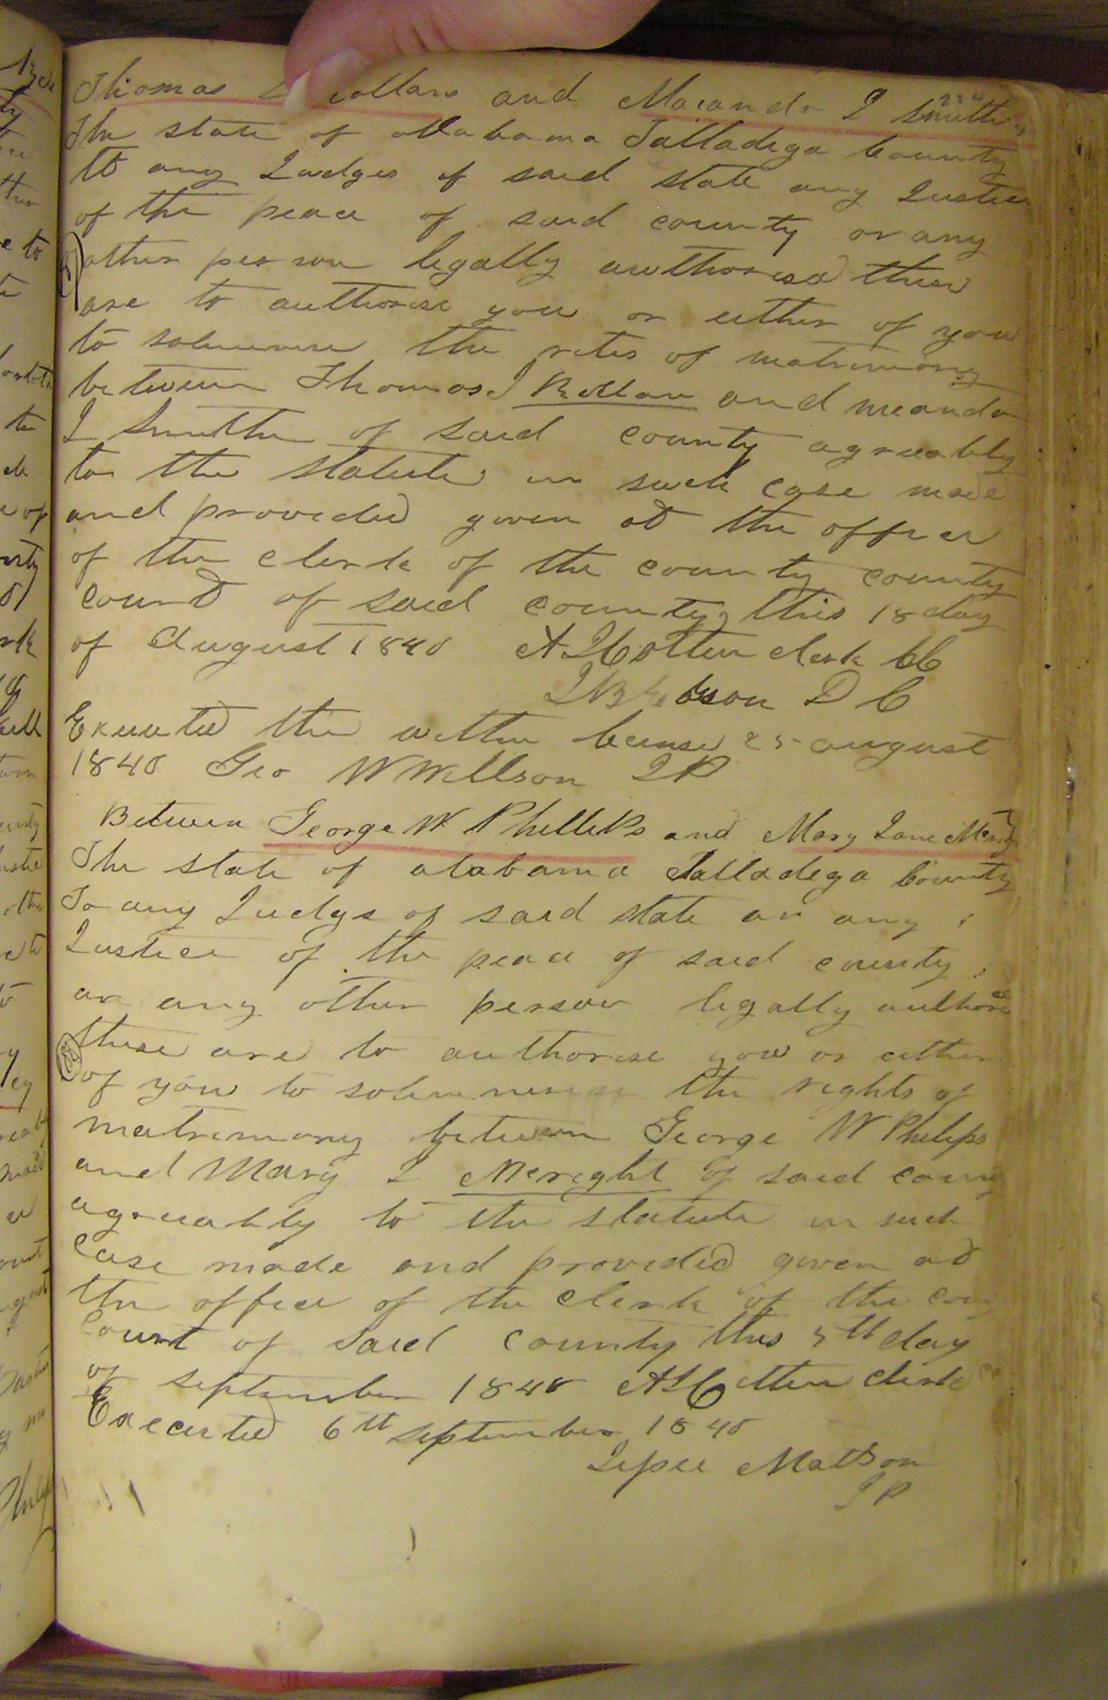 Thomas and Maianda J Smith
The state of Alabama Talladega County
To any Judges of said state any Justice
of the peace of said county or any
other person legally authorised these
are to authorise you or either of you
to solemnise the rites of matrimony
between Thomas J and meanda
J Smith of said county agreeably
to the statute in such case made
and provided given at the office
of the clerk of the county county
court of said county this 18 day
of August 1840 A J Cotten clerk CC
D C
Executed the within license 25 august
1840 Geo W Willson JP
Between George W Phillips and Mary Jane
The state of alabama Talladega County
To any Judge of said state or any
Justice of the peace of said county
or any other person legally authorised
these are to authorise you or either
of you to solemnise the rights of
matrimony between George W Philips
and Mary J Mcright of said county
agreeably to the statute in such
case made and provided given at
the office of the clerk of the coun
Court of said county this 5th day
of september 1840 A J Cotten clerk
Executed 6th september 1840
Jesse Matson
JP